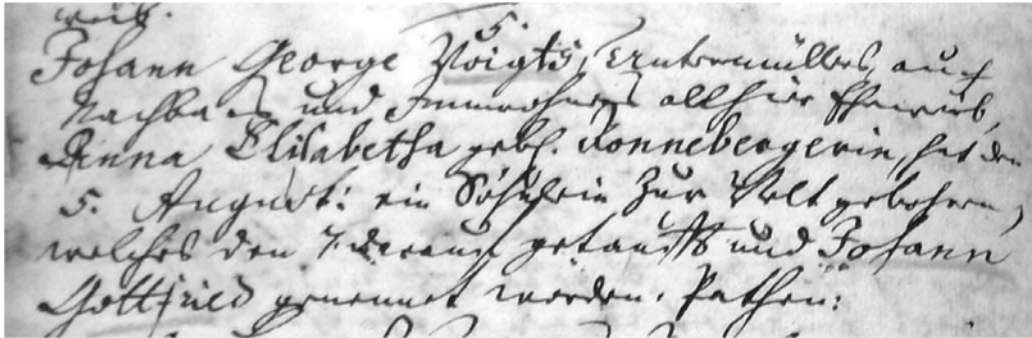 weib.
5.
Johann George Voigts, Untermüllers, auch
Nachbars und Innwohners allhier Eheweib,
Anna Elisabetha gebh. Sonnebergerin, hat den
5. August: ein Söhnlein zur Welt gebohren,
welches den 7. darauf getaufft und Johann
Gottfried genennet worden. Pathen: